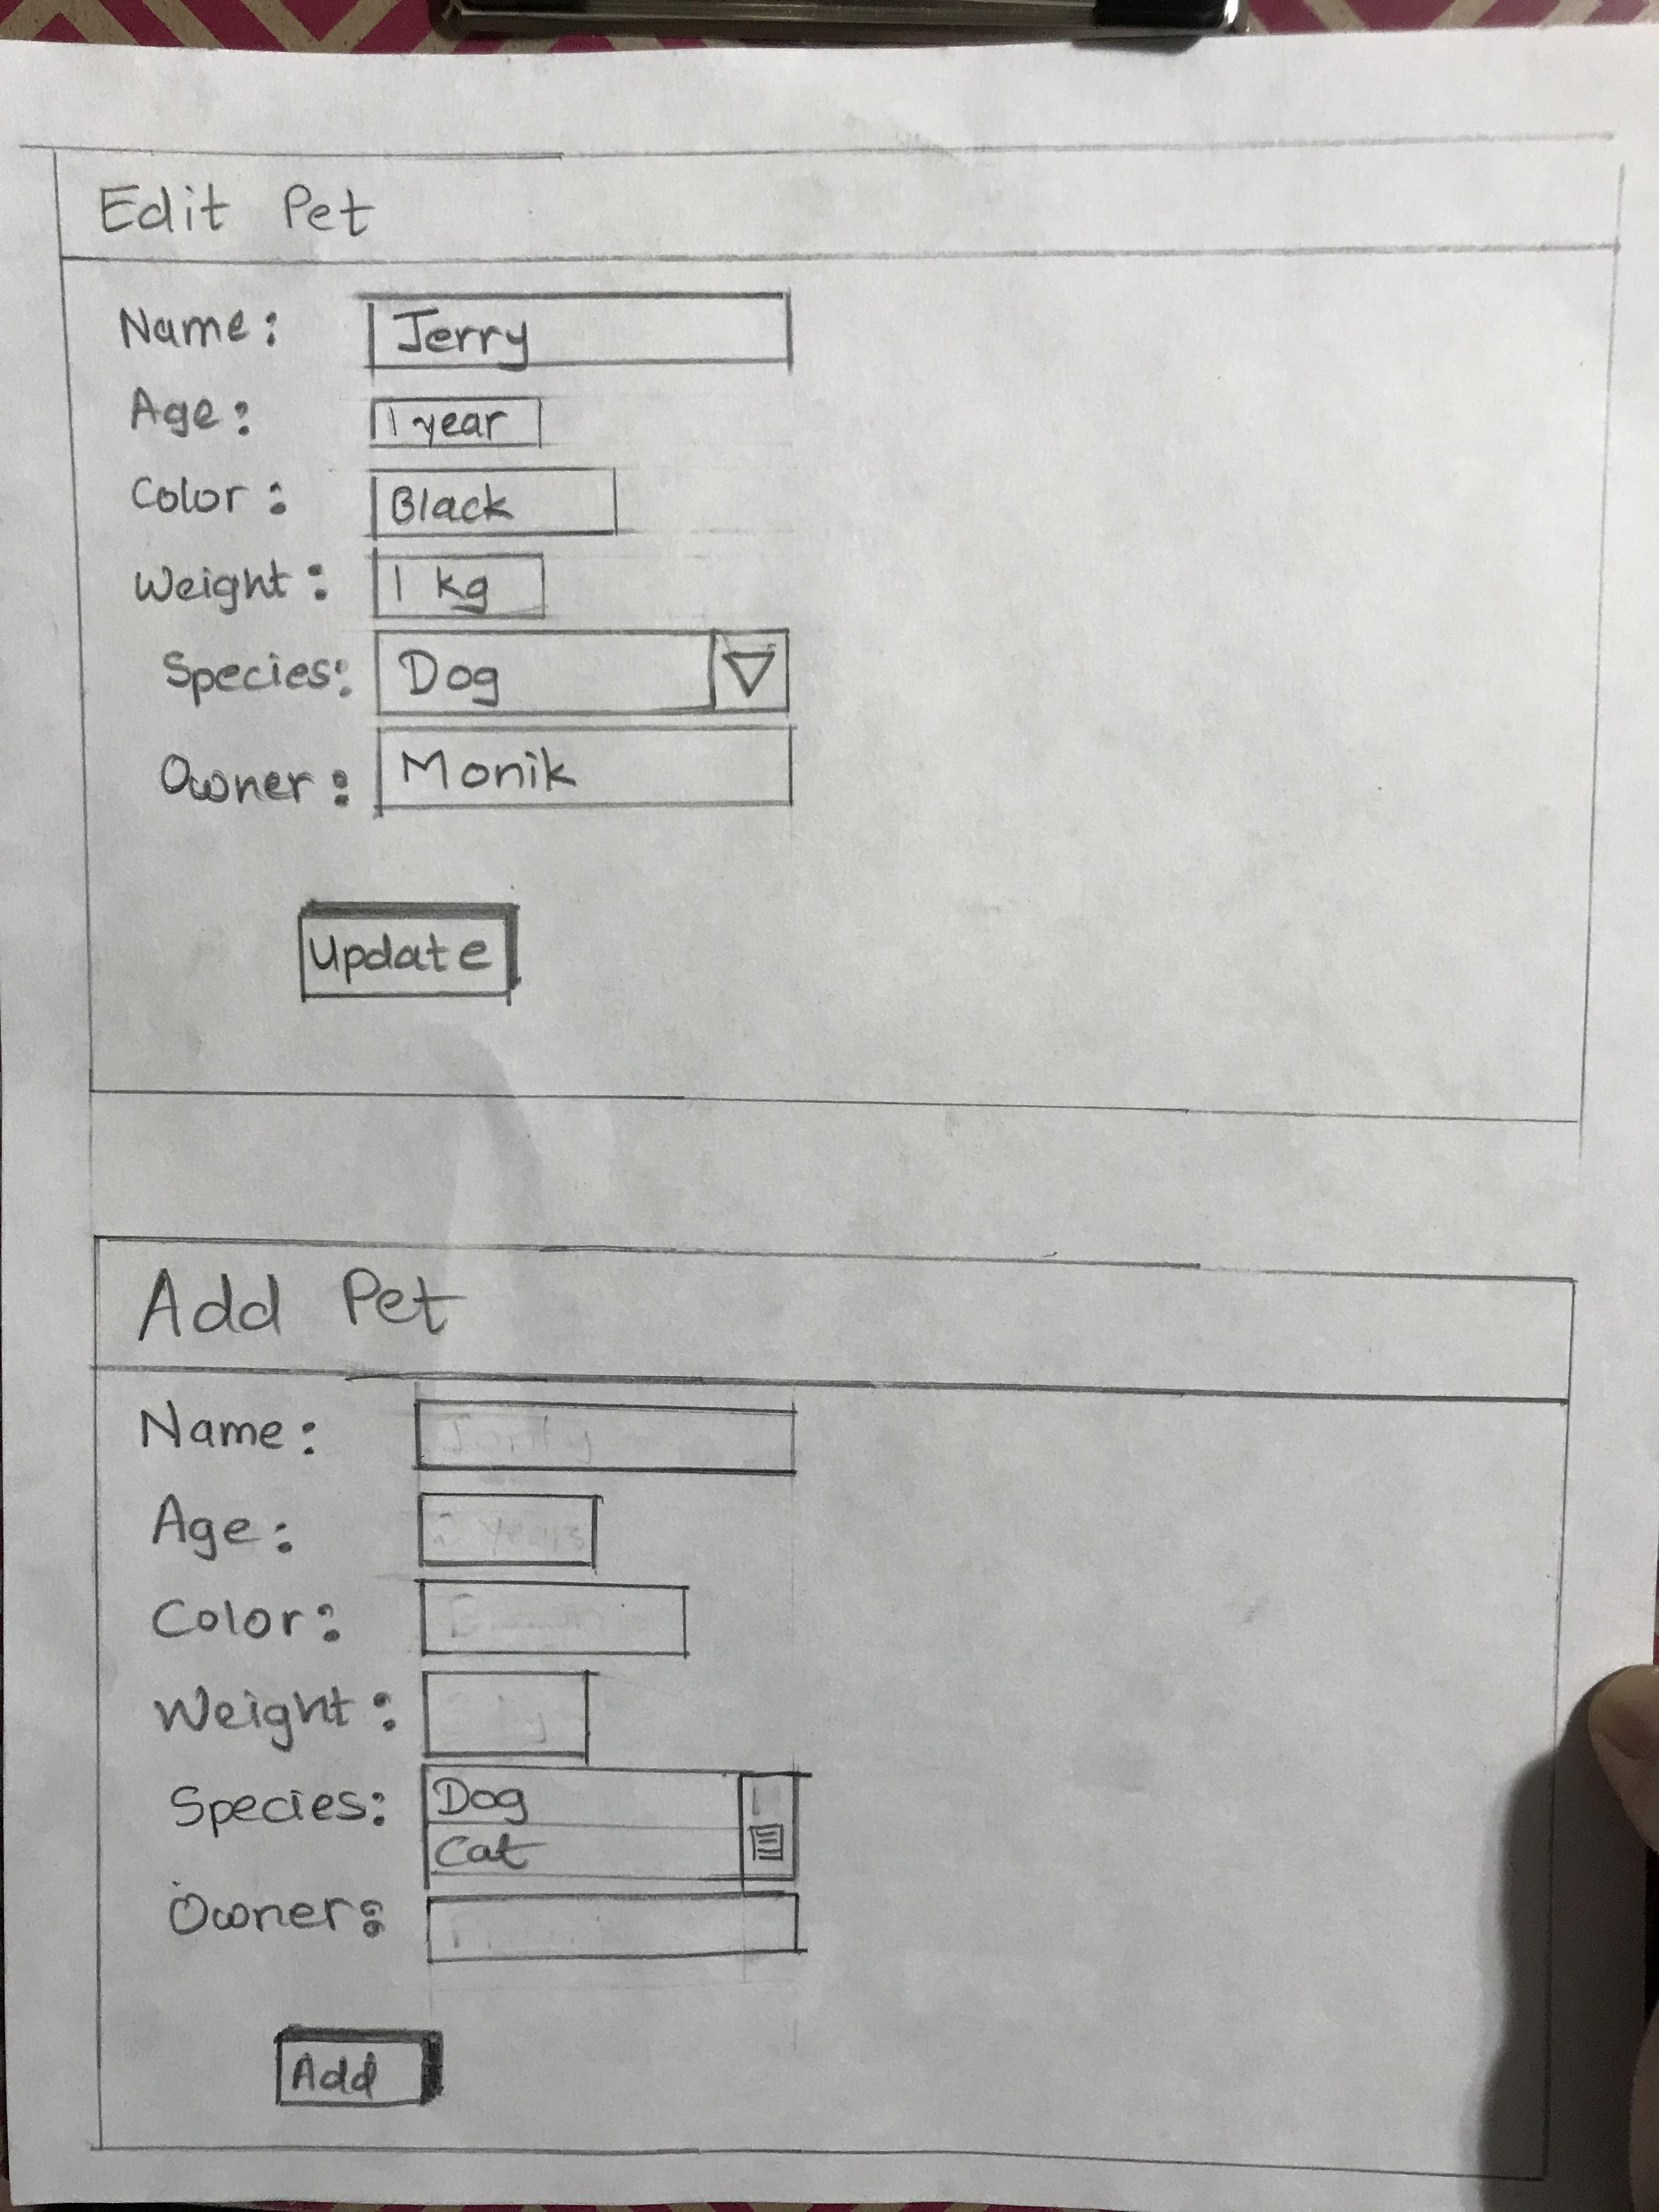 Edit Pet
Name: Jerry
Age: 1 year
Color: Black
Weight: 1 kg
Species: Dog
Owner: Monik
Update
Add Pet
Name:
Age: years
Color:
Weight:
Species: Dog
Cat
Owner:
Add